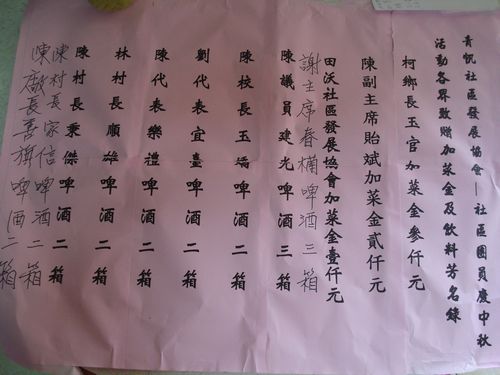 青帆社區發展協會—社區團員慶中秋
活動各界致贈加菜金及飲料芳名錄
柯鄉長玉官加菜金參仟元
陳副主席貽斌加菜金貳仟元
田沃社區發展協會加菜金壹仟元
謝主席春欄啤酒三箱
陳議員建光啤酒三箱
陳校長玉 啤酒二箱
劉代表宜臺啤酒二箱
陳代表樂禮啤酒二箱
林村長順雄啤酒二箱
陳村長秉傑啤酒二箱
陳村長家信啤酒二箱
陳廠長善旗啤酒二箱